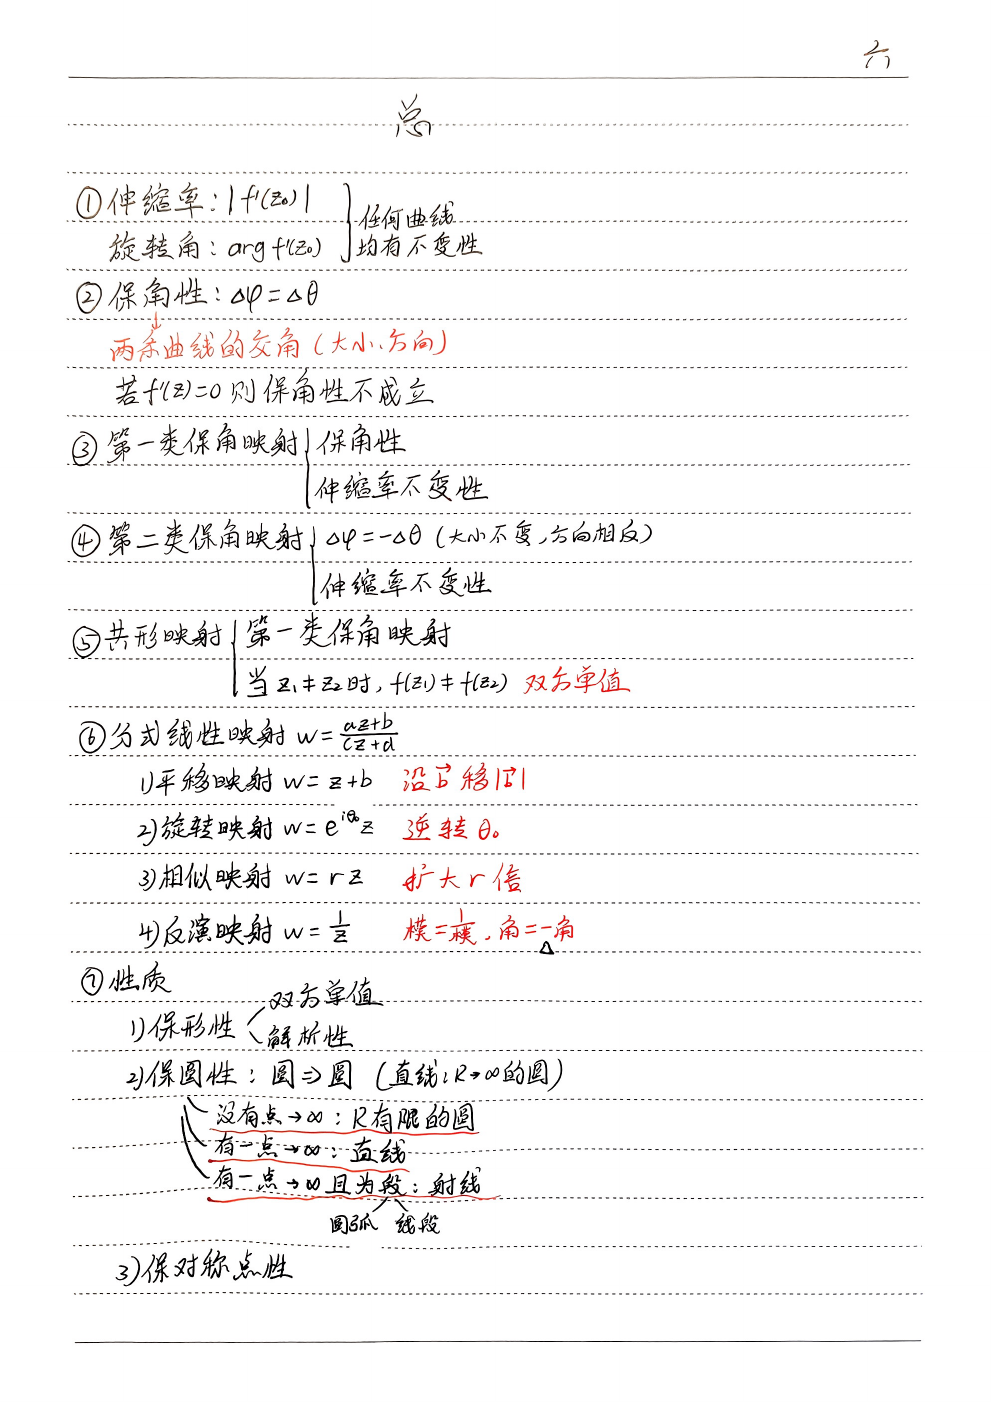 六
总
①伸缩率：|f'(z₀)| 任何曲线
旋转角：arg f'(z₀) 均有不变性
②保角性：△φ=△θ
↓
两条曲线的交角（大小、方向）
若f'(z)=0则保角性不成立
③第一类保角映射 保角性
伸缩率不变性
④第二类保角映射 △φ=-△θ（大小不变，方向相反）
伸缩率不变性
⑤共形映射 第一类保角映射
当z₁≠z₂时，f(z₁)≠f(z₂) 双方单值
⑥分式线性映射 w=(az+b)/(cz+d)
1)平移映射 w=z+b 沿b⃗移|b⃗|
2)旋转映射 w=e^{iθ₀}z 逆转θ₀
3)相似映射 w=rz 扩大r倍
4)反演映射 w=1/z 模=1/模，角=-角
△
⑦性质
1)保形性 双方单值
解析性
2)保圆性：圆⇒圆（直线：R→∞的圆）
没有点→∞：R有限的圆
有一点→∞：直线
有一点→∞且为段：射线
圆弧 线段
3)保对称点性